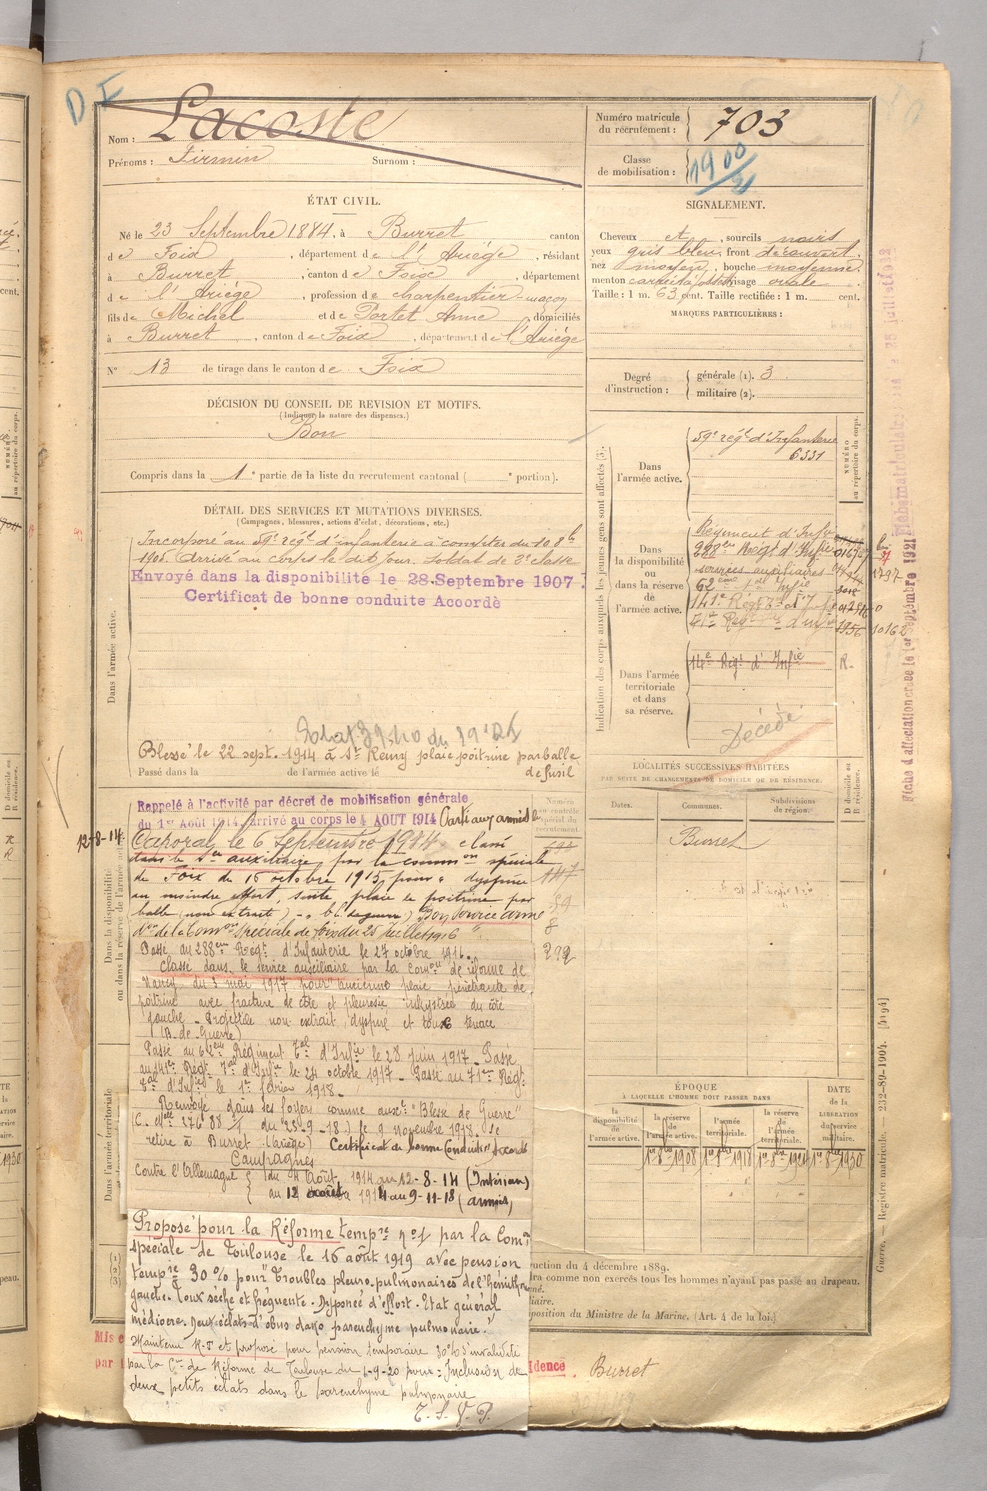 DE
Nom : Lacoste
Prénoms : Firmin Surnom :
Numéro matricule du recrutement : 703
Classe de mobilisation : 1900/21
ÉTAT CIVIL.
Né le 23 Septembre 1884, à Burret canton
de Foix, département de l'Ariège, résidant
à Burret, canton de Foix, département
de l'Ariège, profession de charpentier-maçon
fils de Michel et de Portet Anne, domiciliés
à Burret, canton de Foix, département de l'Ariège
N° 13 de tirage dans le canton de Foix
SIGNALEMENT.
Cheveux et, sourcils noirs
yeux gris bleu, front découvert
nez moyen, bouche moyenne
menton visage ovale
Taille : 1 m. 63 cent. Taille rectifiée : 1 m. cent.
MARQUES PARTICULIÈRES :
Degré d'instruction : générale (1). 3
militaire (2).
DÉCISION DU CONSEIL DE REVISION ET MOTIFS.
(Indiquer la nature des dispenses.)
Bon
Compris dans la 1e partie de la liste du recrutement cantonal ( e portion).
DÉTAIL DES SERVICES ET MUTATIONS DIVERSES.
(Campagnes, blessures, actions d'éclat, décorations, etc.)
Incorporé au 59e régt d'infanterie à compter du 10 8bre
1905. Arrivé au corps le dit jour, soldat de 2e classe
Envoyé dans la disponibilité le 28 Septembre 1907.
Certificat de bonne conduite Accordé
Dans l'armée active.
Blessé le 22 sept. 1914 à St Remy plaie poitrine par balle
de fusil
Passé dans la de l'armée active le
Rappelé à l'activité par décret de mobilisation générale
du 1er Août 1914, arrivé au corps le 4 AOUT 1914 Parti aux armées le
12-8-14. Caporal le 6 Septembre 1914 classé
dans le sce auxiliaire par la common spéciale
de Foix du 16 octobre 1915 pour "dyspnée
au moindre effort, suite plaie de poitrine par
balle (non extrait) Bon service armé
Don de la Comon Spéciale de Foix du 25 Juillet 1916"
Passé au 288ème Régt d'Infanterie le 27 octobre 1916.
Classé dans le service auxiliaire par la Comon de réforme de
Nancy du 3 mai 1917 pour "ancienne plaie pénétrante de
poitrine avec fracture de côte et pleurésie enkystée du côté
gauche - Projectile non extrait, dyspnée et toux tenace
(B. de Guerre)
Passé du 62ème Régiment Tal d'Infie le 28 juin 1917 - Passé
au 141e Régt Tal d'Infie le 24 octobre 1917 - Passé au 71ème Régt
Tal d'Infie le 1er février 1918.
Renvoyé dans ses foyers comme auxre "Blessé de Guerre"
le 9 novembre 1918. Se
retire à Burret (Ariège) Certificat de bonne Conduite Accordé
Campagnes
Contre l'Allemagne { du 4 Août 1914 au 12-8-14 (Intérieur)
au 12 août 1914 au 9-11-18 (armées)
Proposé pour la Réforme tempre n°1 par la Comon
spéciale de Toulouse le 16 août 1919 avec pension
tempre 30% pour "Troubles pleuro-pulmonaires de l'hémithorax
gauche. Toux sèche et fréquente. Dyspnée d'effort. Etat général
médiocre. Deux éclats d'obus dans parenchyme pulmonaire."
Maintenu R.T et proposé pour pension temporaire 30% d'invalidité
par la Con de Réforme de Toulouse du 1-9-20 pour : Inclusion de
deux petits éclats dans le parenchyme pulmonaire
T. S. V. P.
Indication des corps auxquels les jeunes gens sont affectés (3).
NUMÉRO au répertoire du corps.
Dans l'armée active.
59e régt d'Infanterie
6331
Dans la disponibilité ou dans la réserve de l'armée active.
Régiment d'Infie
288e Régt d'Infie
services auxiliaires
62ème Infie
141e Régt
71e Régt d'Infie
10162
Dans l'armée territoriale et dans sa réserve.
14e Régt d'Infie R.
Décédé
LOCALITÉS SUCCESSIVES HABITÉES
PAR SUITE DE CHANGEMENTS DE DOMICILE OU DE RÉSIDENCE.
Dates. Communes. Subdivisions de région. D domicile ou R résidence.
Burret
ÉPOQUE
À LAQUELLE L'HOMME DOIT PASSER DANS
la disponibilité de l'armée active. la réserve de l'armée active. l'armée territoriale. la réserve de l'armée territoriale.
DATE de la LIBÉRATION du service militaire.
1er 8bre 1908 1er 8bre 1918 1er 8bre 1924 1er 8bre 1930
Numéro au contrôle spécial du recrutement
Fiche d'affectation créée le 1er Septembre 1921
Guerre. — Registre matricule. — 232-89-1904. [4194]
ruction du 4 décembre 1889.
dra comme non exercés tous les hommes n'ayant pas passé au drapeau.
position du Ministre de la Marine. (Art. 4 de la loi.)
Mis e
par
idence. Burret